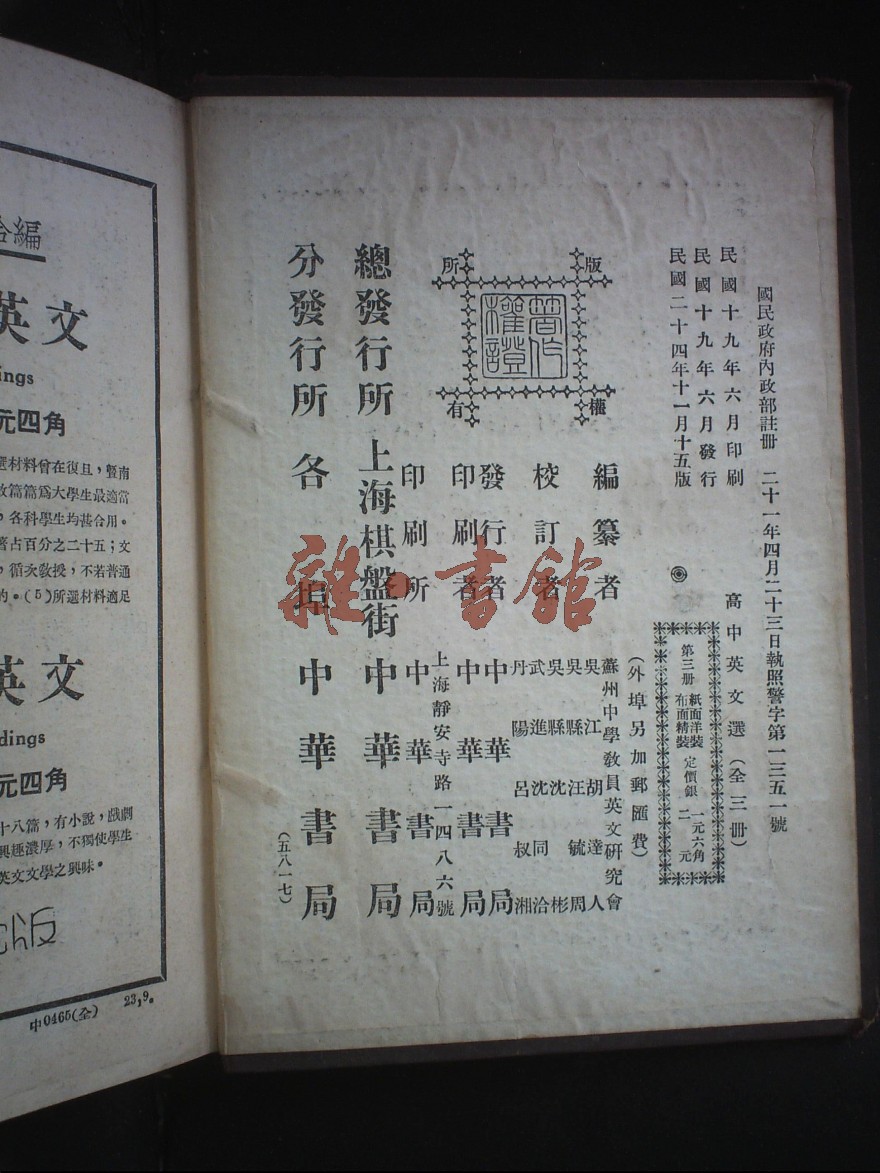 國民政府內政部註冊 二十一年四月二十三日執照警字第一三五一號
民國十九年六月印刷
民國十九年六月發行
民國二十四年十一月十五版
◎高中英文選(全三冊)
第三冊 紙面洋裝 定價銀 一元六角
布面精裝 二元
(外埠另加郵匯費)
版權所有
著作權證
編纂者 蘇州中學教員英文研究會
校訂者 吳江胡達人
吳縣汪毓周
吳縣沈彬
武進沈同洽
丹陽呂叔湘
發行者 中華書局
印刷者 中華書局
印刷所 上海靜安寺路一四八六號
中華書局
總發行所 上海棋盤街 中華書局
分發行所 各埠 中華書局
(五八一七)
雜·書館
編
英文
ings
元四角
選材料曾在復旦,暨南
故篇篇爲大學生最適當
,各科學生均甚合用。
著占百分之二十五;文
,循次教授,不若普通
的。(5)所選材料適足
英文
dings
元四角
十八篇,有小說,戲劇
興趣濃厚,不獨使學生
英文文學之興味。
版
中0465(全) 23,9。